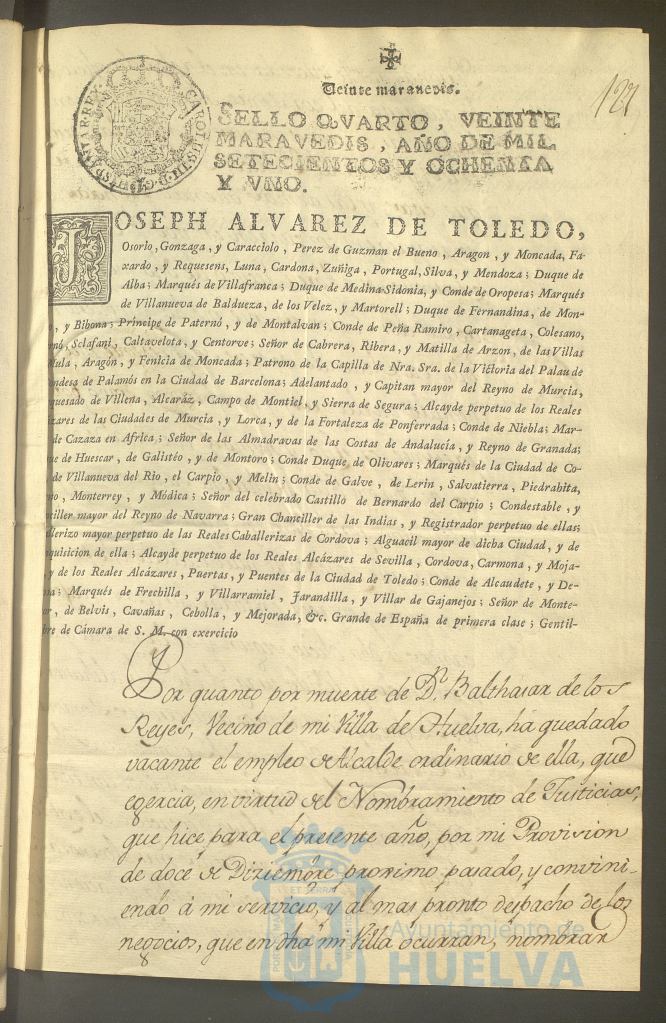 Veinte maravedis.
127
CAROLUS III D.G. HISPANIAR. REX.
SELLO QVARTO, VEINTE
MARAVEDIS, AÑO DE MIL
SETECIENTOS Y OCHENTA
Y VNO.
JOSEPH ALVAREZ DE TOLEDO,
Osorio, Gonzaga, y Caracciolo, Perez de Guzman el Bueno, Aragon, y Moncada, Fa-
xardo, y Requesens, Luna, Cardona, Zuñiga, Portugal, Silva, y Mendoza; Duque de
Alba; Marqués de Villafranca; Duque de Medina-Sidonia, y Conde de Oropesa; Marqués
de Villanueva de Baldueza, de los Velez, y Martorell; Duque de Fernandina, de Mon-
o, y Bibona; Principe de Paternó, y de Montalvan; Conde de Peña Ramiro, Cartanageta, Colesano,
rnó, Sclafani, Caltavelota, y Centorve; Señor de Cabrera, Ribera, y Matilla de Arzon, de las Villas
Mula, Aragón, y Fenicia de Moncada; Patrono de la Capilla de Nra. Sra. de la Victoria del Palau de
ondesa de Palamós en la Ciudad de Barcelona; Adelantado, y Capitan mayor del Reyno de Murcia,
quesado de Villena, Alcaráz, Campo de Montiel, y Sierra de Segura; Alcayde perpetuo de los Reales
zares de las Ciudades de Murcia, y Lorca, y de la Fortaleza de Ponferrada; Conde de Niebla; Mar-
de Cazaza en Africa; Señor de las Almadravas de las Costas de Andalucía, y Reyno de Granada;
ue de Huescar, de Galistéo, y de Montoro; Conde Duque de Olivares; Marqués de la Ciudad de Co-
de Villanueva del Rio, el Carpio, y Melin; Conde de Galve, de Lerin, Salvatierra, Piedrahita,
jo, Monterrey, y Módica; Señor del celebrado Castillo de Bernardo del Carpio; Condestable, y
nciller mayor del Reyno de Navarra; Gran Chanciller de las Indias, y Registrador perpetuo de ellas;
allerizo mayor perpetuo de las Reales Caballerizas de Cordova; Alguacil mayor de dicha Ciudad, y de
quisicion de ella; Alcayde perpetuo de los Reales Alcázares de Sevilla, Cordova, Carmona, y Moja-
y de los Reales Alcázares, Puertas, y Puentes de la Ciudad de Toledo; Conde de Alcaudete, y De-
na; Marqués de Frechilla, y Villarramiel, Jarandilla, y Villar de Gajanejos; Señor de Monte-
or, de Belvis, Cavañas, Cebolla, y Mejorada, &c. Grande de España de primera clase; Gentil-
bre de Cámara de S. M. con exercicio
Por quanto por muerte de Dn. Balthasar de los
Reyes, Vecino de mi Villa de Huelva, ha quedado
vacante el empleo de Alcalde ordinario de ella, que
egercia, en virtud del Nombramiento de Justicias,
que hice, para el presente año, por mi Provision
de doce de Diziembre proximo pasado, y convini-
endo á mi servicio, y al mas pronto despacho de los
negocios, que en dha mi Villa ocurran, nombrar
Ayuntamiento de
HUELVA